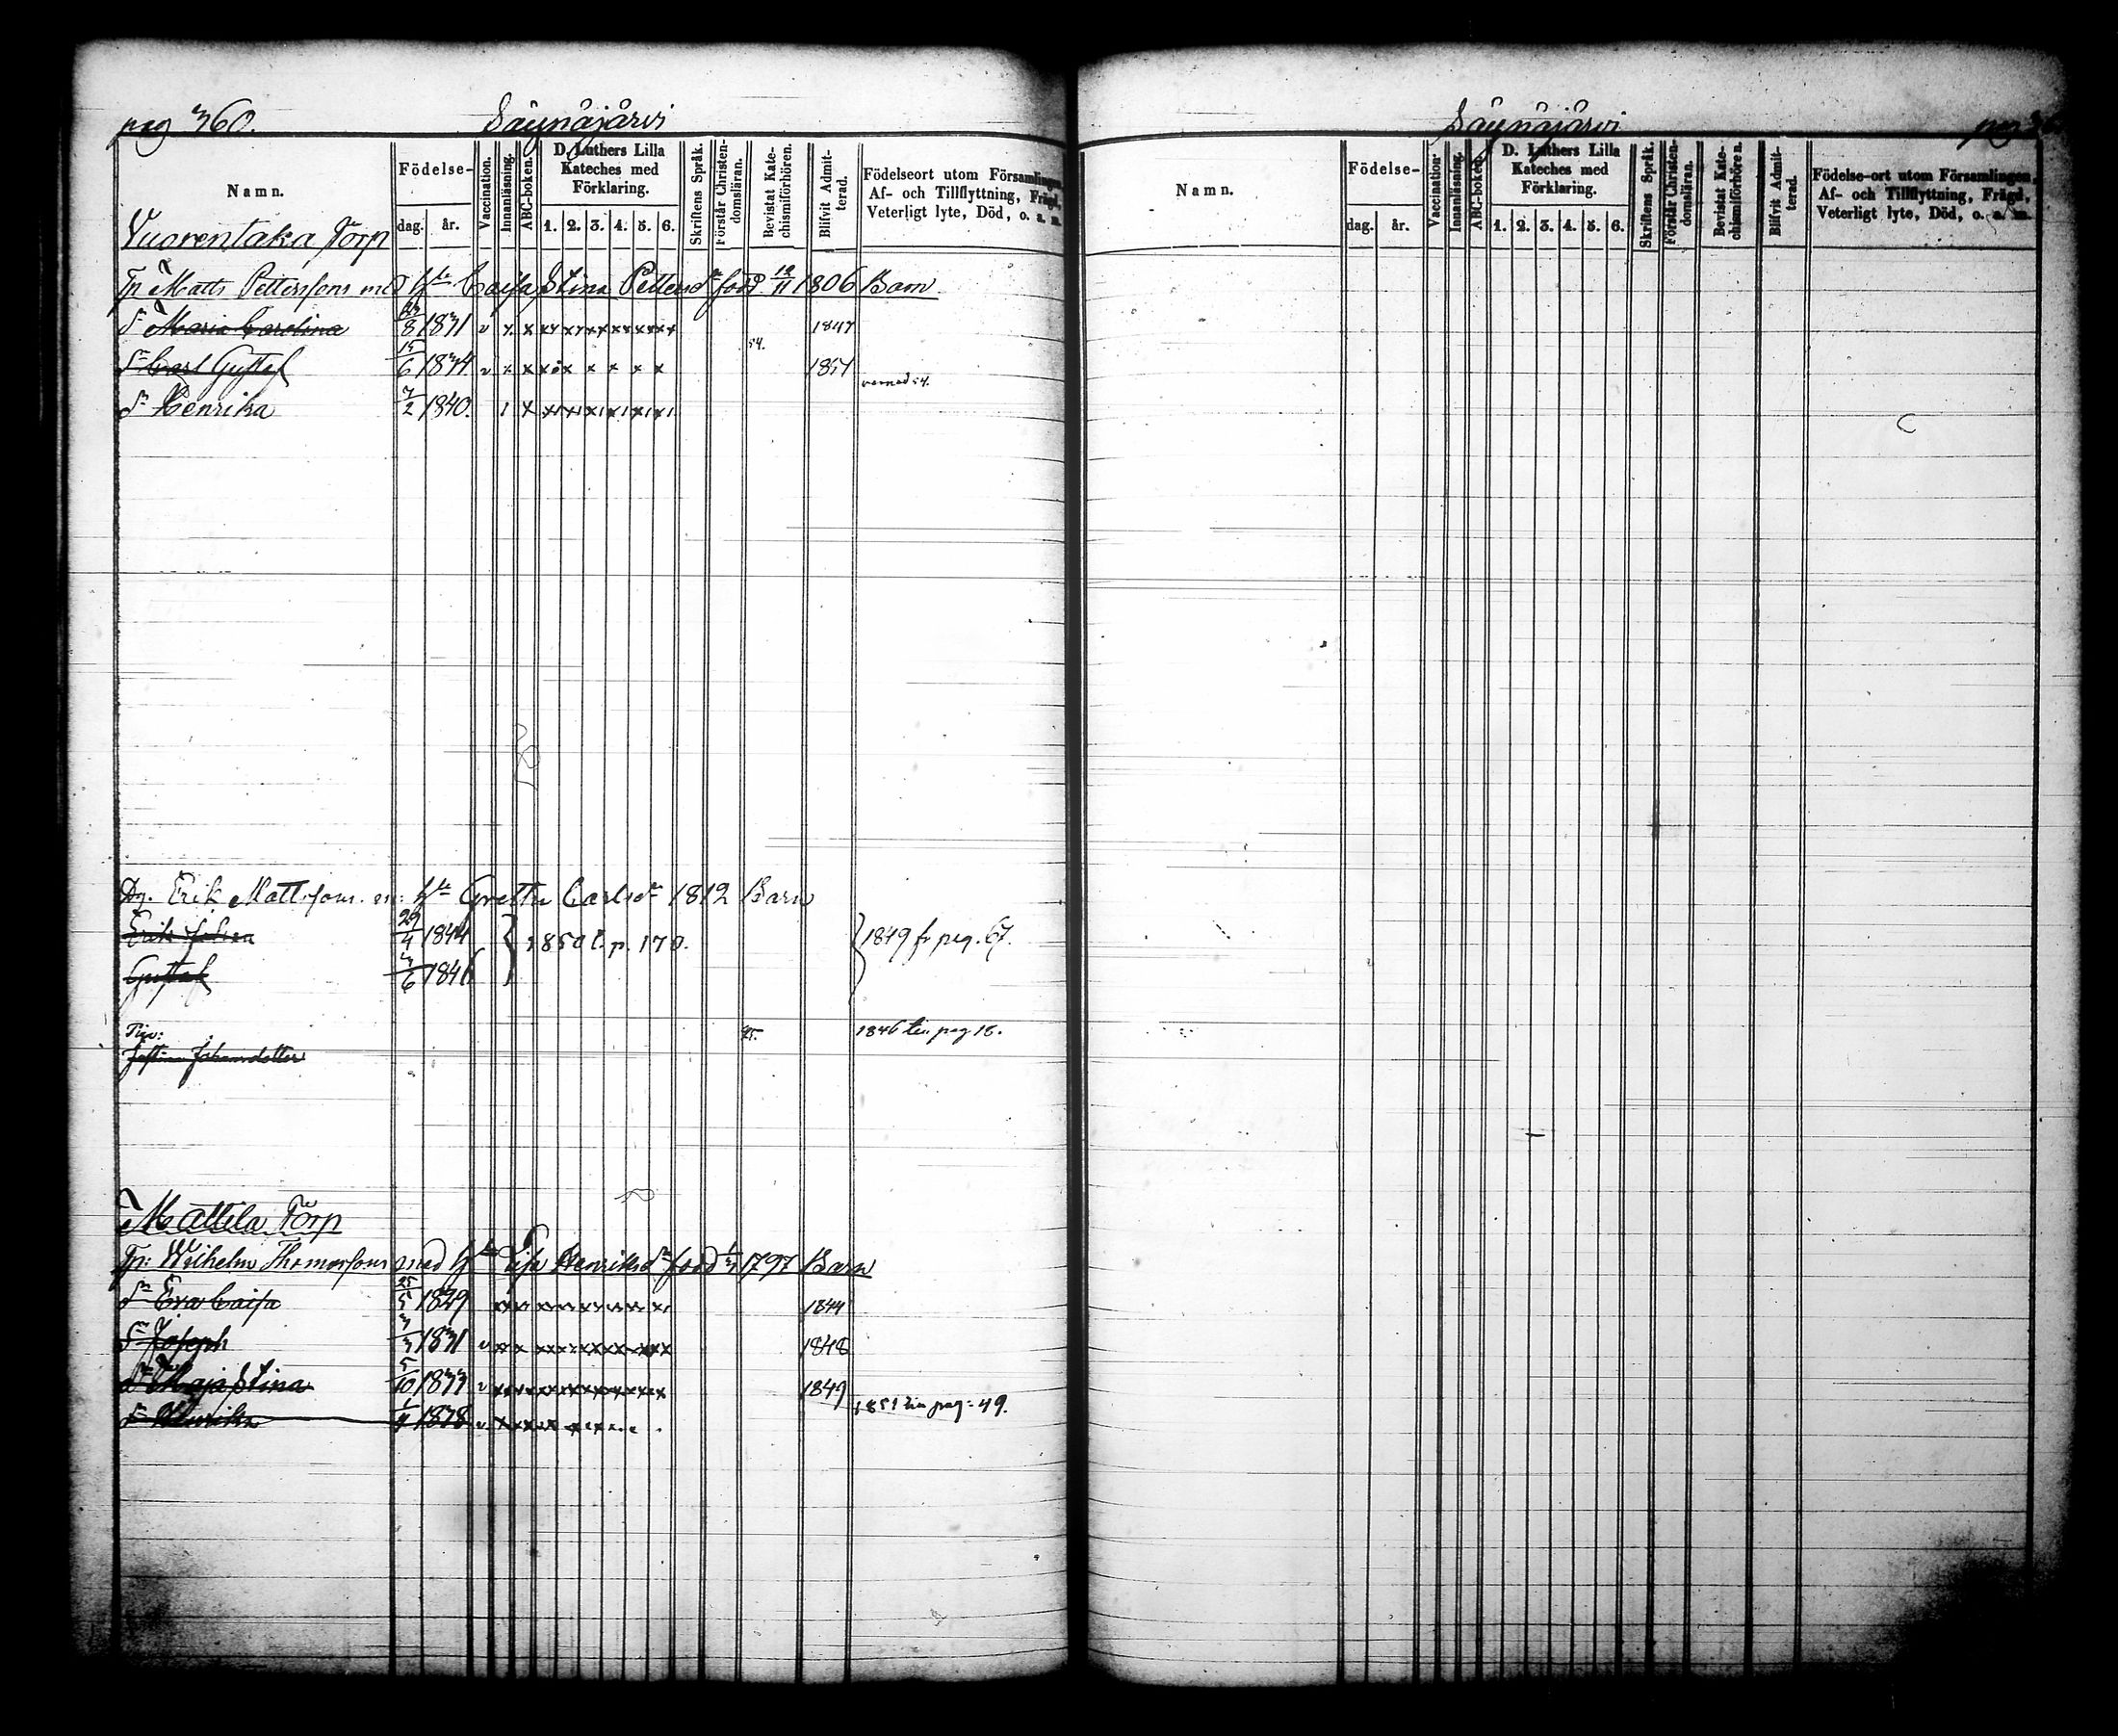 pag 360. Säynäjärvi
Namn. Födelse- dag. år. Vaccination. Innanläsning. ABC-boken. D. Luthers Lilla Kateches med Förklaring. 1. 2. 3. 4. 5. 6. Skriftens Språk. Förstår Christendomsläran. Bevistat Katechismiförhören. Blifvit Admitterad. Födelseort utom Församlingen, Af- och Tillflyttning, Frägd, Veterligt lyte, Död, o. s. m.
Vuorentaka Torp
Tp Matts Pettersons med h. Caisa Stina Petters dr född 12/11 1806 Barn
dr Maria Carolina 23/8 1831 v x x 1847
54.
Sn Carl Gustaf 15/6 1834 v x x 1854
dr Henrika 7/2 1840.
Dg. Erik Mattssons m: h. Gretta Carlsdr 1812 Barn
Erik Johan 29/4 1844 1850 t. p. 170. 1849 fr pag. 67.
Gustaf 3/6 1846
Pig:
Justina Johansdotter 45. 1846 till pag 16.
Mattila Torp
Tp: Wilhelm Thomassons med h. Lisa Henriksdr född 1797 Barn
dr Eva Caisa 25/5 1829 1844
Sn Joseph 3/3 1831 v 1848
dr Maja Stina 5/10 1833 v 1849
dr Henrika 1838 v 1851 till pag: 49.
Säynäjärvi
Namn. Födelse- dag. år. Vaccination. Innanläsning. ABC-boken. D. Luthers Lilla Kateches med Förklaring. 1. 2. 3. 4. 5. 6. Skriftens Språk. Förstår Christendomsläran. Bevistat Katechismiförhören. Blifvit Admitterad. Födelse-ort utom Församlingen, Af- och Tillflyttning, Frägd, Veterligt lyte, Död, o. s. m.